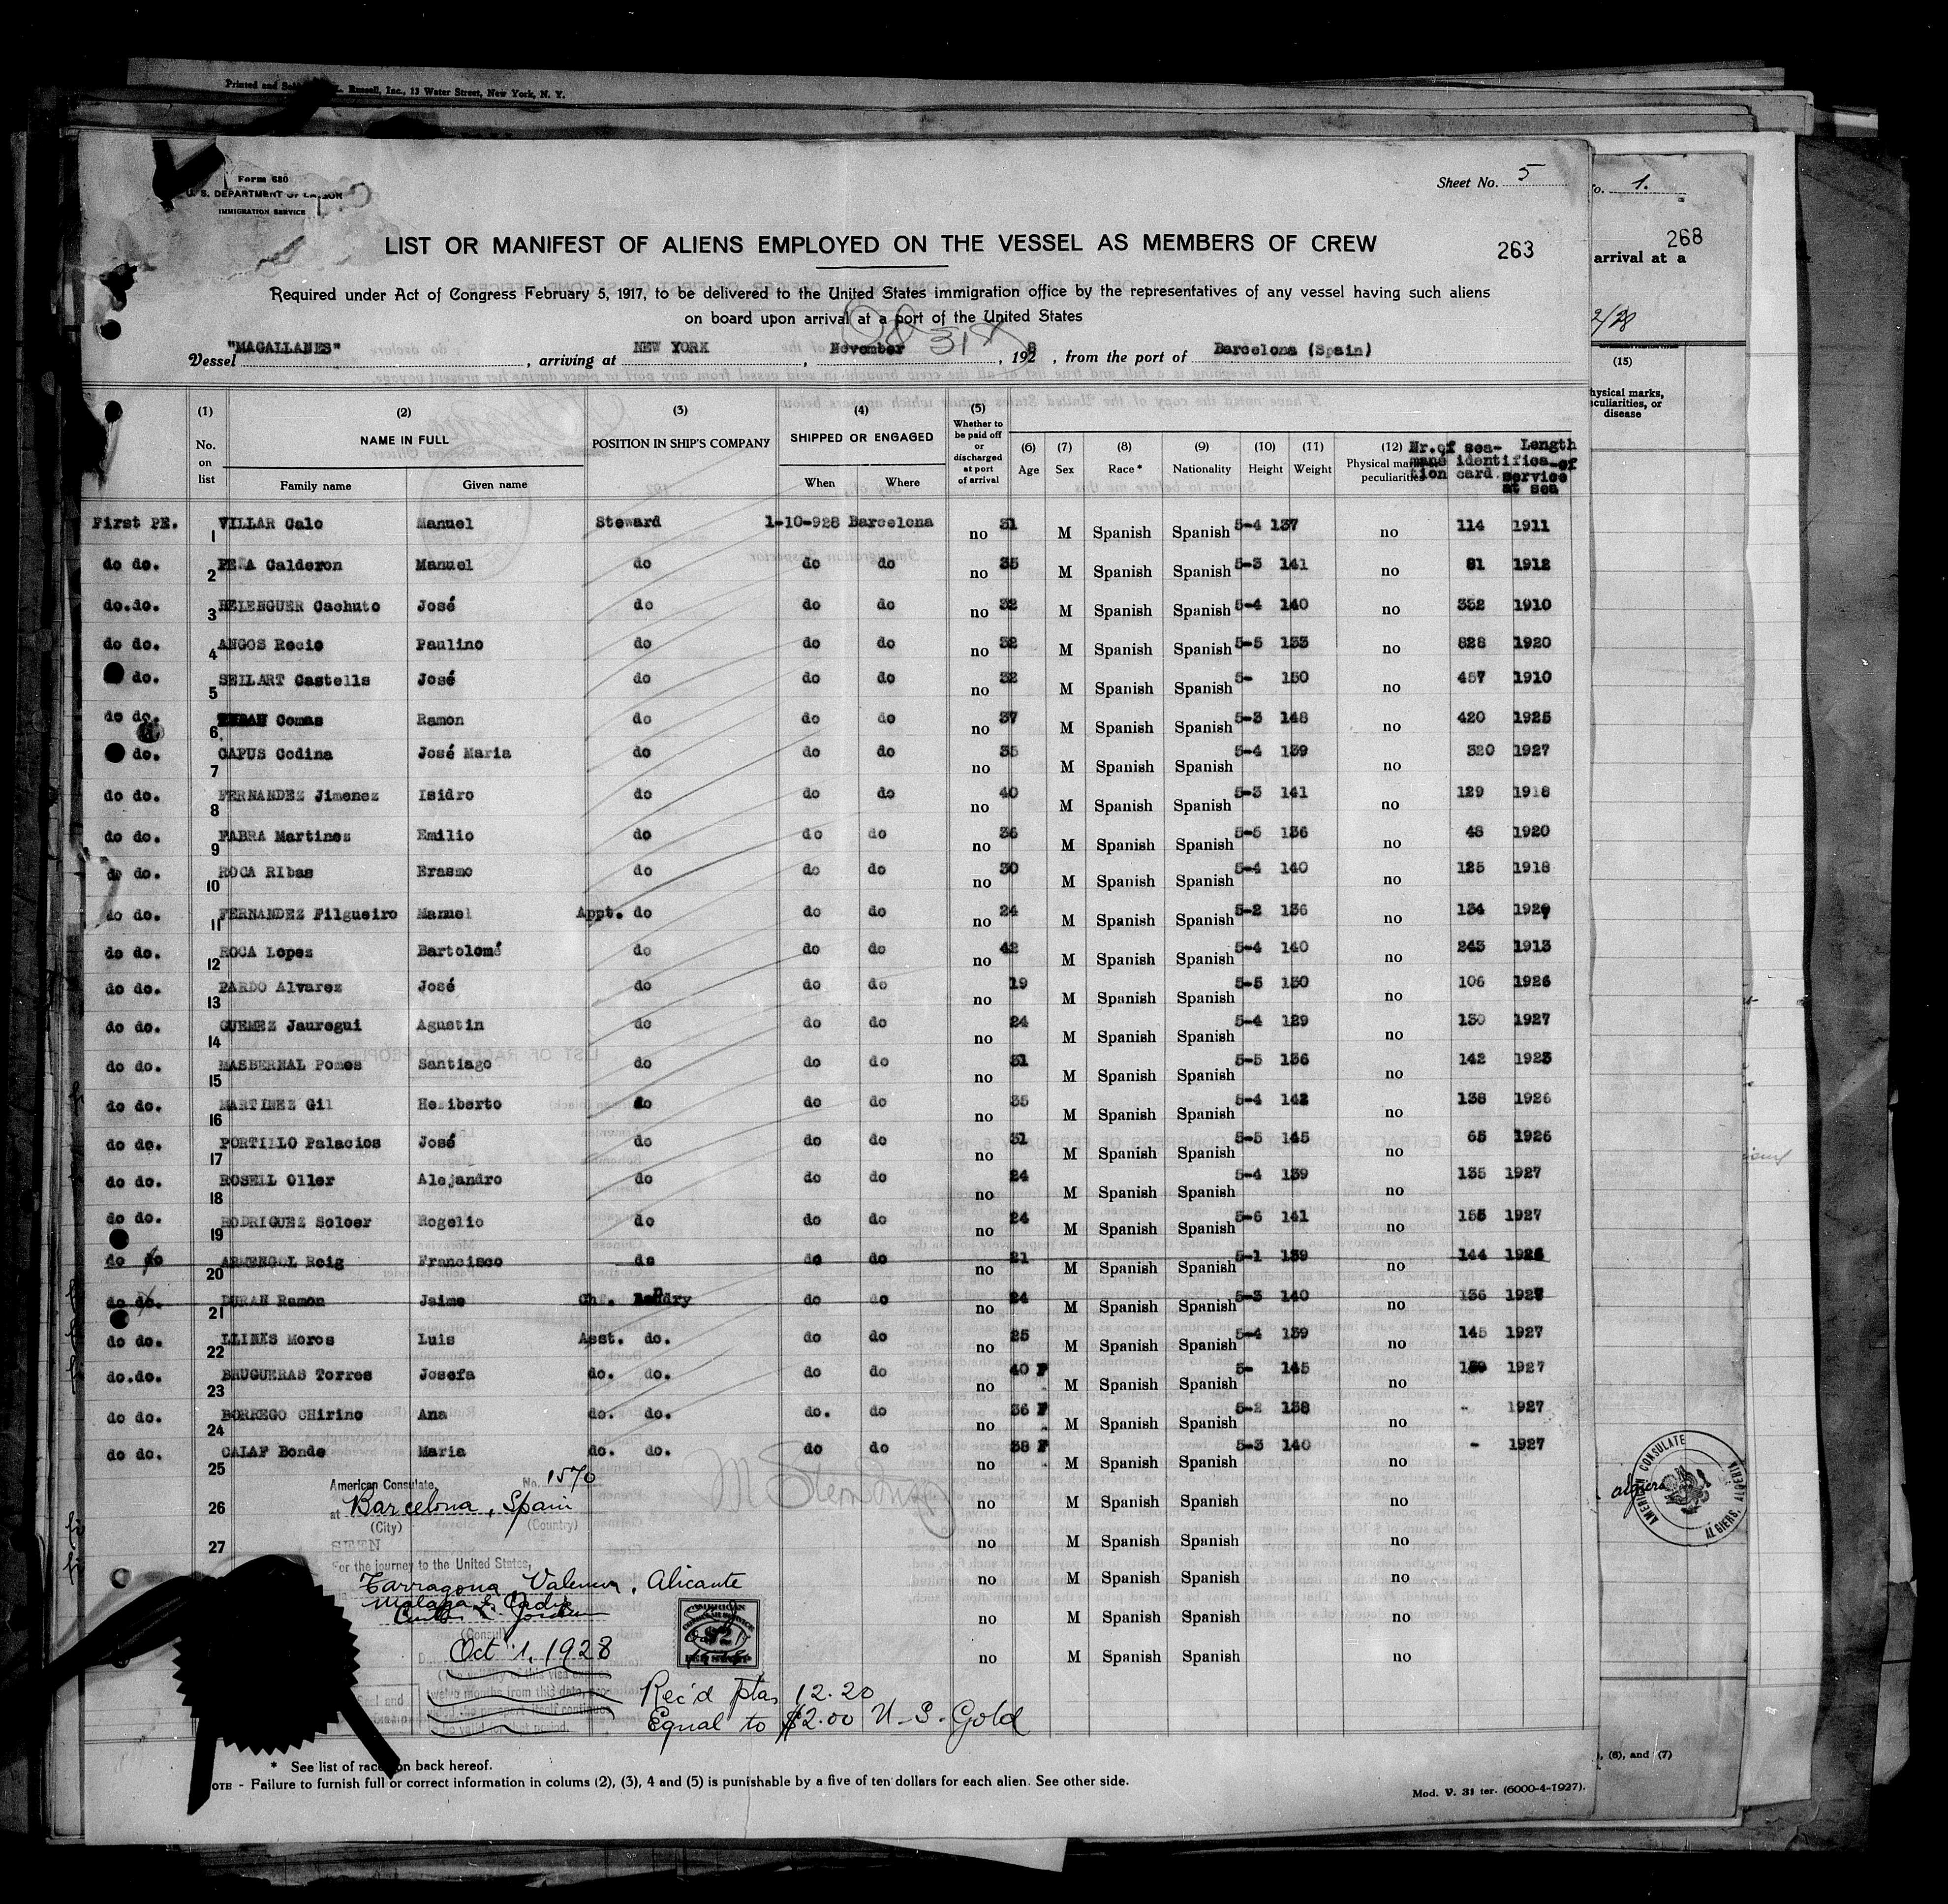 Printed and Sold L. Russell, Inc., 13 Water Street, New York, N. Y.
Form 680
U. S. DEPARTMENT OF LABOR
IMMIGRATION SERVICE
Sheet No. 5
1.
LIST OR MANIFEST OF ALIENS EMPLOYED ON THE VESSEL AS MEMBERS OF CREW
263
268
arrival at a
Required under Act of Congress February 5, 1917, to be delivered to the United States immigration office by the representatives of any vessel having such aliens
on board upon arrival at a port of the United States
Vessel "MAGALLANES", arriving at NEW YORK, November 31, 1928, from the port of Barcelona (Spain)
2/28
(15)
physical marks, peculiarities, or disease
(1) No. on list (2) NAME IN FULL Family name Given name (3) POSITION IN SHIP'S COMPANY (4) SHIPPED OR ENGAGED When Where (5) Whether to be paid off or discharged at port of arrival (6) Age (7) Sex (8) Race* (9) Nationality (10) Height (11) Weight (12) Physical marks peculiarities Nr. of sea-mans identification card. Length of service at sea
First PE. 1 VILLAR Calo Manuel Steward 1-10-928 Barcelona no 31 M Spanish Spanish 5-4 137 no 114 1911
do do. 2 PEÑA Calderon Manuel do do do no 35 M Spanish Spanish 5-3 141 no 81 1912
do.do. 3 BELENGUER Cachuto José do do do no 32 M Spanish Spanish 5-4 140 no 352 1910
do do. 4 ANGOS Recio Paulino do do do no 32 M Spanish Spanish 5-5 133 no 828 1920
do. 5 SEILART Castells José do do do no 32 M Spanish Spanish 5- 150 no 457 1910
do do. 6 Comas Ramon do do do no 37 M Spanish Spanish 5-3 148 no 420 1925
do. 7 CAPUS Codina José Maria do do do no 35 M Spanish Spanish 5-4 139 no 320 1927
do do. 8 FERNANDEZ Jimenez Isidro do do do no 40 M Spanish Spanish 5-3 141 no 129 1918
do do. 9 FABRA Martines Emilio do do do no 36 M Spanish Spanish 5-5 136 no 48 1920
do do. 10 ROCA RIbas Erasmo do do do no 30 M Spanish Spanish 5-4 140 no 125 1918
do do. 11 FERNANDEZ Filgueiro Manuel Appt. do do do no 24 M Spanish Spanish 5-2 136 no 134 192
do do. 12 ROCA Lopez Bartolomé do do do no 42 M Spanish Spanish 5-4 140 no 243 1913
do do. 13 PARDO Alvarez José do do do no 19 M Spanish Spanish 5-5 130 no 106 1926
do do. 14 GUEMEZ Jauregui Agustin do do do no 24 M Spanish Spanish 5-4 129 no 130 1927
do do. 15 MASBERNAL Pomes Santiago do do do no 31 M Spanish Spanish 5-5 136 no 142 1923
do do. 16 MARTINEZ Gil Heriberto do do do no 35 M Spanish Spanish 5-4 142 no 138 1926
do do. 17 PORTILLO Palacios José do do do no 31 M Spanish Spanish 5-5 145 no 65 1926
do do. 18 ROSELL Oller Alejandro do do do no 24 M Spanish Spanish 5-4 139 no 135 1927
do do. 19 RODRIGUEZ Soloer Rogelio do do do no 24 M Spanish Spanish 5-6 141 no 155 1927
do do 20 ARMENGOL Roig Francisco do do do no 21 M Spanish Spanish 5-1 139 no 144 192
do do. 21 DURAN Ramon Jaime Ch. do do no 24 M Spanish Spanish 5-3 140 no 136 1927
do do. 22 LLINES Moros Luis Asst. do. do do no 25 M Spanish Spanish 5-4 139 no 145 1927
do.do. 23 BRUGUERAS Torres Josefa do. do. do do no 40 F M Spanish Spanish 5- 145 no 1927
do do. 24 BORREGO CHirino Ana do. do. do. do no 36 F M Spanish Spanish 5-2 138 no - 1927
do do. 25 CALAF Bonde Maria do. do. do do no 38 F M Spanish Spanish 5-3 140 no - 1927
American Consulate, No. 1570
26 at Barcelona, Spain no M Spanish Spanish no
(City) (Country)
27 SEEN no M Spanish Spanish no
For the journey to the United States,
Tarragona, Valencia, Alicante no M Spanish Spanish no
Malaga & Cadiz
no M Spanish Spanish no
(Consul)
Oct 1, 1928 no M Spanish Spanish no
twelve months from this date,
Rec'd ptas 12.20
Equal to $2.00 U-S-Gold
AMERICAN CONSULATE
ALGIERS, ALGERIA
* See list of races on back hereof.
NOTE - Failure to furnish full or correct information in colums (2), (3), 4 and (5) is punishable by a five of ten dollars for each alien. See other side.
Mod. V. 31 ter. (6000-4-1927).
, (6), and (7)